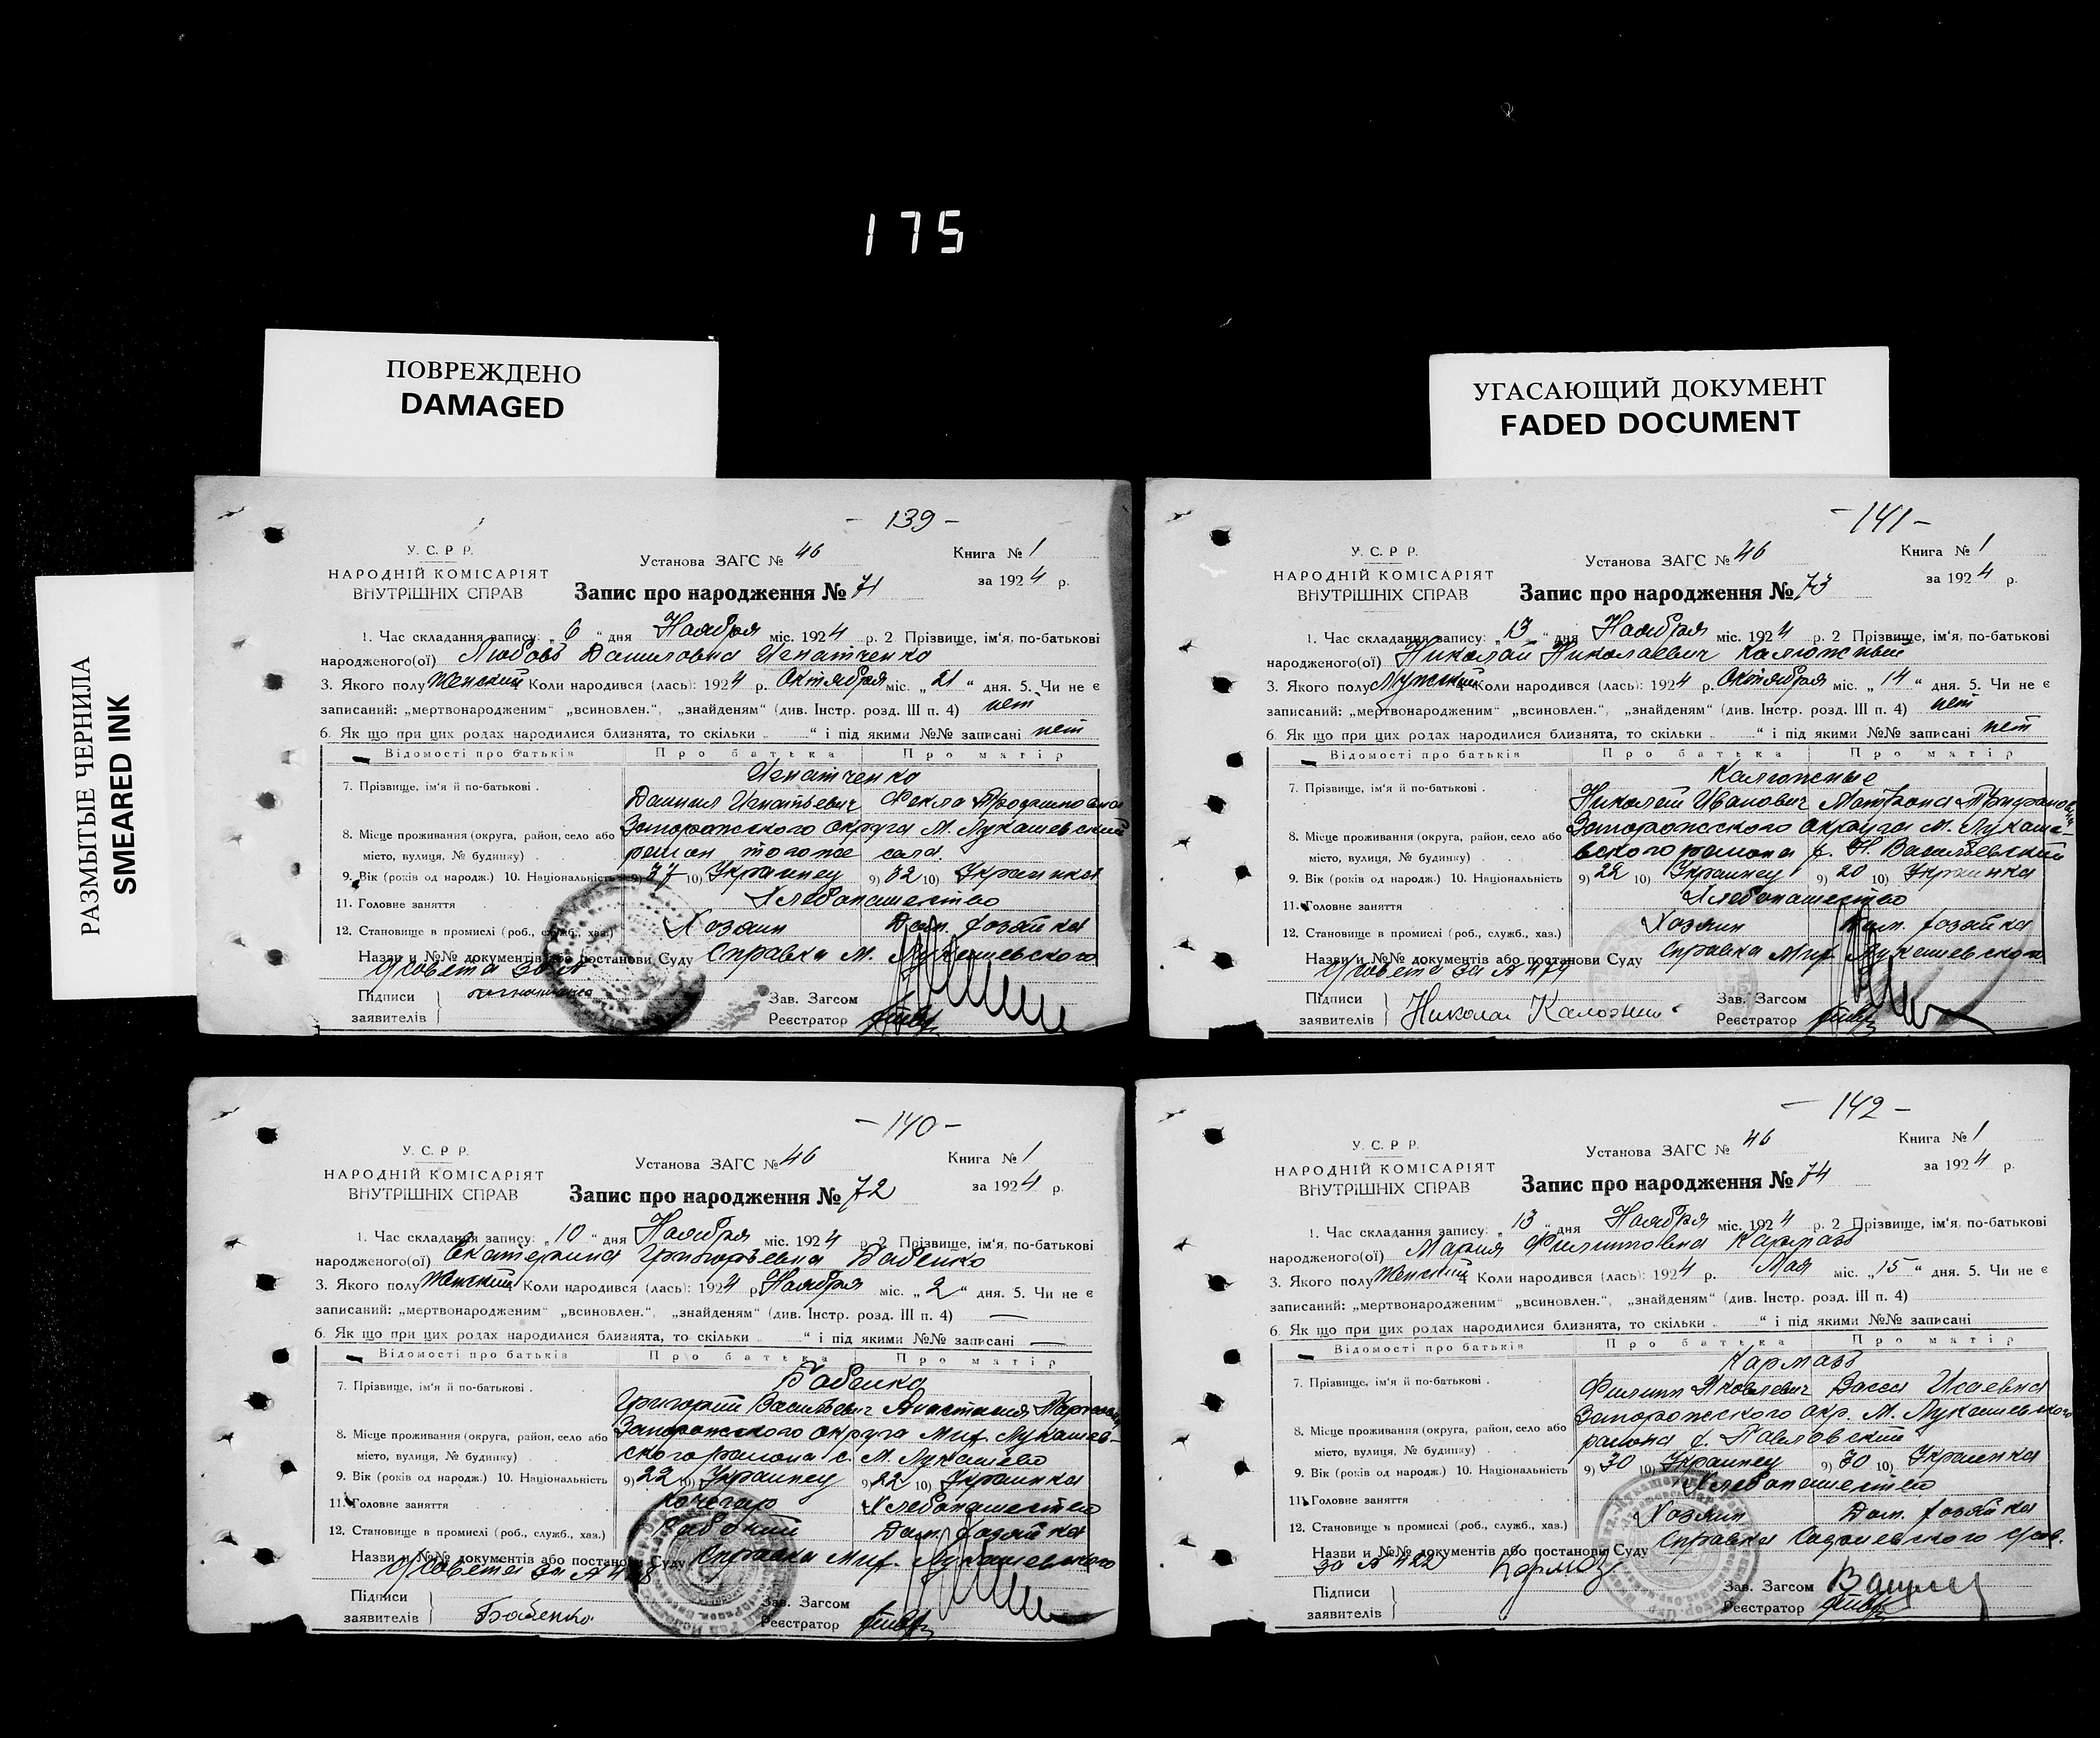 175
ПОВРЕЖДЕНО
DAMAGED
УГАСАЮЩИЙ ДОКУМЕНТ
FADED DOCUMENT
РАЗМЫТЫЕ ЧЕРНИЛА
SMEARED INK
- 139 -
У. С. Р Р.
НАРОДНІЙ КОМІСАРІЯТ
ВНУТРІШНІХ СПРАВ
Установа ЗАГС № 46
Книга № 1
за 1924 р.
Запис про народження № 71
1. Час складання запису: „ 6 “ дня Ноября міс. 1924 р. 2 Прізвище, ім'я, по-батькові
народженого(ої) Любовь Даниловна Игнатченко
3. Якого полу Женский Коли народився (лась): 1924 р. Октября міс. „ 21 “ дня. 5. Чи не є
записаний: „мертвонародженим“ „всиновлен.“, „знайденям“ (див. Інстр. розд. III п. 4) нет
6. Як що при цих родах народилися близнята, то скільки “ і під якими №№ записані нет
Відомості про батьків Про батька Про матір
7. Прізвище, ім'я й по-батькові . Игнатченко
Даниил Игнатьевич Фекла Трофимовна
8. Місце проживання (округа, район, село або Запорожского Округа М. Лукашевский
місто, вулиця, № будинку) район тогоже села.
9. Вік (років од народж.) 10. Національність 9) 37 10) Украинец 9) 32 10) Украинка
11. Головне заняття Хлебопашество
12. Становище в промислі (роб., служб., хаз.) Хозяин Дом. хозяйка
Назви и №№ документів або постанови Суду Справка М. Лукашевского
с/совета за №
Підписи
заявителів
Зав. Загсом
Реєстратор
- 140 -
У. С. Р Р.
НАРОДНІЙ КОМІСАРІЯТ
ВНУТРІШНІХ СПРАВ
Установа ЗАГС № 46
Книга № 1
за 1924 р.
Запис про народження № 72
1. Час складання запису: „ 10 “ дня Ноября міс. 1924 р. 2 Прізвище, ім'я, по-батькові
народженого(ої) Екатерина Григорьевна Бабенко
3. Якого полу Женский Коли народився (лась): 1924 р. Ноября міс. „ 2 “ дня. 5. Чи не є
записаний: „мертвонародженим“ „всиновлен.“, „знайденям“ (див. Інстр. розд. III п. 4) —
6. Як що при цих родах народилися близнята, то скільки “ і під якими №№ записані —
Відомості про батьків Про батька Про матір
7. Прізвище, ім'я й по-батькові . Бабенко
Григорий Васильевич Анастасия
8. Місце проживання (округа, район, село або Запорожского округа Мих. Лукашев-
місто, вулиця, № будинку) ского района с. М. Лукашево
9. Вік (років од народж.) 10. Національність 9) 22 10) Украинец 9) 22 10) Украинка
11. Головне заняття кочегар Хлебопашество
12. Становище в промислі (роб., служб., хаз.) Рабочий Дом. хозяйка
Назви и №№ документів або постанови Суду Справка Мих. Лукашевского
с/совета за №
Підписи
заявителів Бабенко
Зав. Загсом
Реєстратор
- 141 -
У. С. Р Р.
НАРОДНІЙ КОМІСАРІЯТ
ВНУТРІШНІХ СПРАВ
Установа ЗАГС № 46
Книга № 1
за 1924 р.
Запис про народження № 73
1. Час складання запису: „ 13 “ дня Ноября міс. 1924 р. 2 Прізвище, ім'я, по-батькові
народженого(ої) Николай Николаевич Калюжный
3. Якого полу Мужский Коли народився (лась): 1924 р. Октября міс. „ 14 “ дня. 5. Чи не є
записаний: „мертвонародженим“ „всиновлен.“, „знайденям“ (див. Інстр. розд. III п. 4) нет
6. Як що при цих родах народилися близнята, то скільки “ і під якими №№ записані нет
Відомості про батьків Про батька Про матір
7. Прізвище, ім'я й по-батькові . Калюжные
Николай Иванович Матрона
8. Місце проживання (округа, район, село або Запорожского округа М. Лукаше-
місто, вулиця, № будинку) вского района х. Н. Васильевский
9. Вік (років од народж.) 10. Національність 9) 22 10) Украинец 9) 20 10) Украинка
11. Головне заняття Хлебопашество
12. Становище в промислі (роб., служб., хаз.) Хозяин Дом. хозяйка
Назви и №№ документів або постанови Суду Справка Мих. Лукашевского
с/совета за № 474
Підписи
заявителів Николай
Зав. Загсом
Реєстратор
- 142 -
У. С. Р Р.
НАРОДНІЙ КОМІСАРІЯТ
ВНУТРІШНІХ СПРАВ
Установа ЗАГС № 46
Книга № 1
за 1924 р.
Запис про народження № 74
1. Час складання запису: „ 13 “ дня Ноября міс. 1924 р. 2 Прізвище, ім'я, по-батькові
народженого(ої) Мария Филипповна Кармазь
3. Якого полу Женский Коли народився (лась): 1924 р. Мая міс. „ 15 “ дня. 5. Чи не є
записаний: „мертвонародженим“ „всиновлен.“, „знайденям“ (див. Інстр. розд. III п. 4)
6. Як що при цих родах народилися близнята, то скільки “ і під якими №№ записані
Відомості про батьків Про батька Про матір
7. Прізвище, ім'я й по-батькові . Кармазь
Филипп Яковлевич Васса Исаевна
8. Місце проживання (округа, район, село або Запорожского окр. М. Лукашевского
місто, вулиця, № будинку) района х. Павловский
9. Вік (років од народж.) 10. Національність 9) 30 10) Украинец 9) 30 10) Украинка
11. Головне заняття Хлебопашество
12. Становище в промислі (роб., служб., хаз.) Хозяин Дом. хозяйка
Назви и №№ документів або постанови Суду Справка
за № 422 Кармаз
Підписи
заявителів
Зав. Загсом
Реєстратор